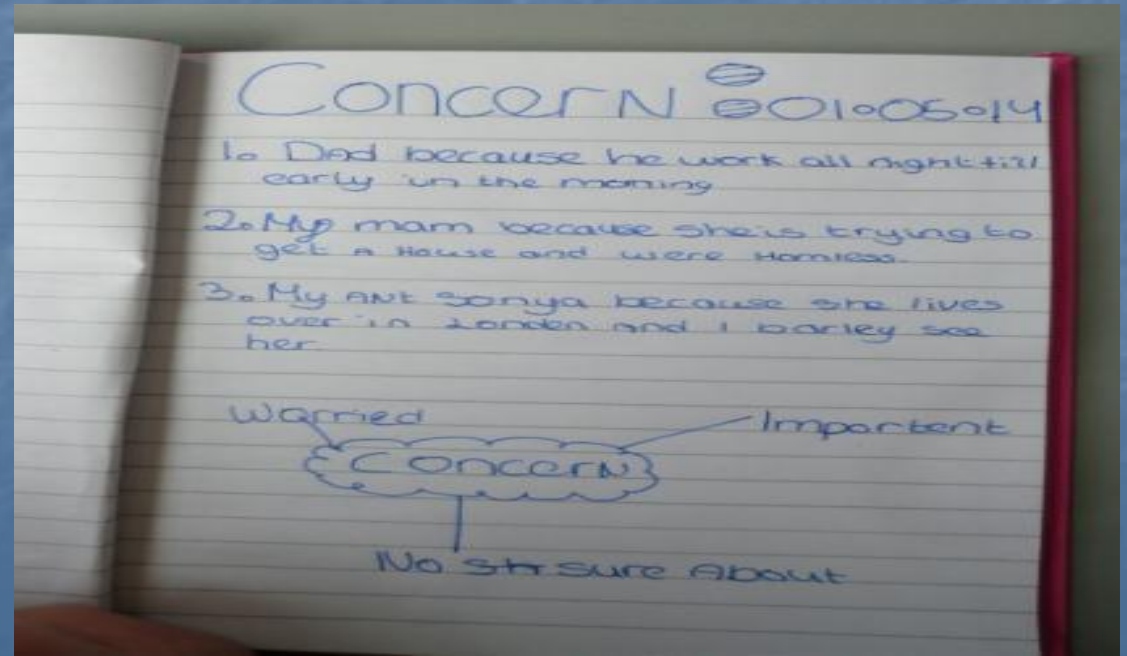 Concern : 01.05.14
1. Dad because he work all night till
early in the morning
2. My mam because she is trying to
get A House and were Homless.
3. My ANt Sonya because she lives
over in Londen And I barley see
her
Worried
Importent
Concern
No sure About